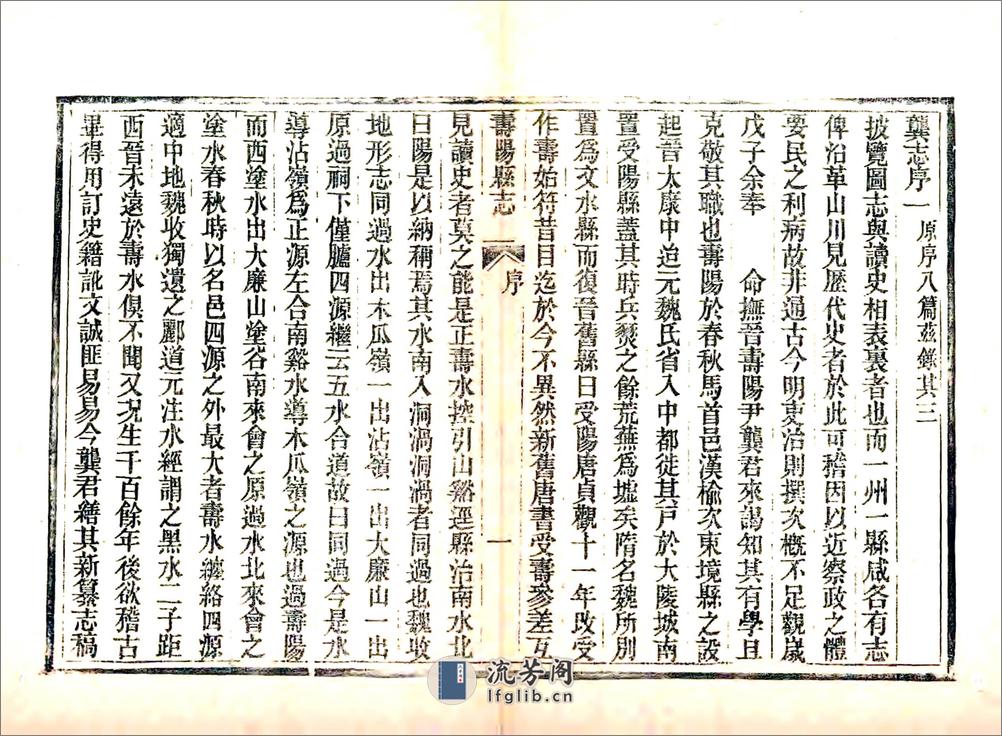 龔志序一 原序八篇茲錄其三
披覽圖志與讀史相表裏者也而一州一縣咸各有志
俾沿革山川見歷代史者於此可稽因以近察政之體
要民之利病故非通古今明吏治則撰次概不足觀歲
戊子余奉 命撫晉壽陽尹龔君來謁知其有學且
克敬其職也壽陽於春秋馬首邑漢榆次東境縣之設
起晉太康中迨元魏氏省入中都徙其戶於大陵城南
置受陽縣蓋其時兵燹之餘荒蕪爲墟矣隋名魏所別
置爲文水縣而復晉舊縣曰受陽唐貞觀十一年改受
作壽始符昔目迄於今不異然新舊唐書受壽參差互
壽陽縣志 序 一
見讀史者莫之能是正壽水控引山谿逕縣治南水北
曰陽是以納稱焉其水南入洞渦洞渦者同過也魏收
地形志同過水出木瓜嶺一出沾嶺一出大廉山一出
原過祠下僅臚四源繼云五水合道故曰同過今是水
導沾嶺爲正源左合南谿水導木瓜嶺之源也過壽陽
而西塗水出大廉山塗谷南來會之原過水北來會之
塗水春秋時以名邑四源之外最大者壽水纏絡四源
適中地魏收獨遺之酈道元注水經謂之黑水二子距
西晉未遠於壽水俱不聞又況生千百餘年後欲稽古
畢得用訂史籍訛文誠匪易易今龔君繕其新纂志稿
流芳阁
lfglib.cn